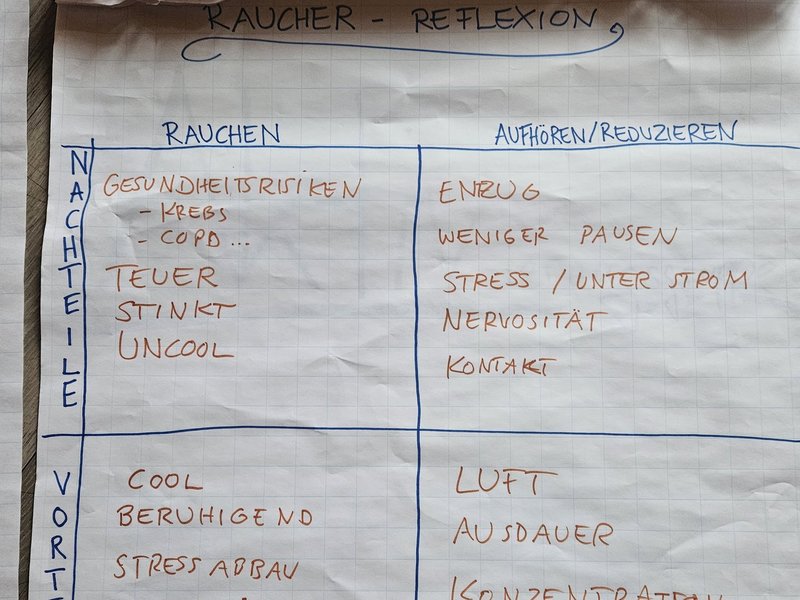 RAUCHER - REFLEXION
RAUCHEN
AUFHÖREN/REDUZIEREN
NACHTEILE
GESUNDHEITSRISIKEN
- KREBS
- COPD ...
TEUER
STINKT
UNCOOL
ENZUG
WENIGER PAUSEN
STRESS / UNTER STROM
NERVOSITÄT
KONTAKT
VORT
COOL
BERUHIGEND
STRESSABBAU
LUFT
AUSDAUER
KONZENTRATION